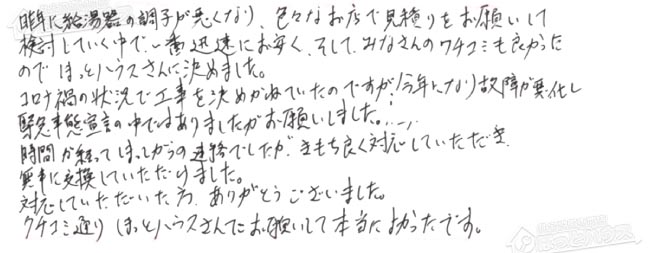 昨年に給湯器の調子が悪くなり、色々なお店で見積りをお願いして
検討していく中で、一番迅速にお安く、そして、みなさんのクチコミも良かった
のでほっとハウスさんに決めました。
コロナ禍の状況で工事を決めかねていたのですが、今年になり故障が悪化し
緊急事態宣言の中ではありましたがお願いしました。
時間が経ってしまってからの連絡でしたが、きもち良く対応していただき
無事に交換していただけました。
対応していただいた方、ありがとうございました。
クチコミ通りほっとハウスさんにお願いして本当によかったです。